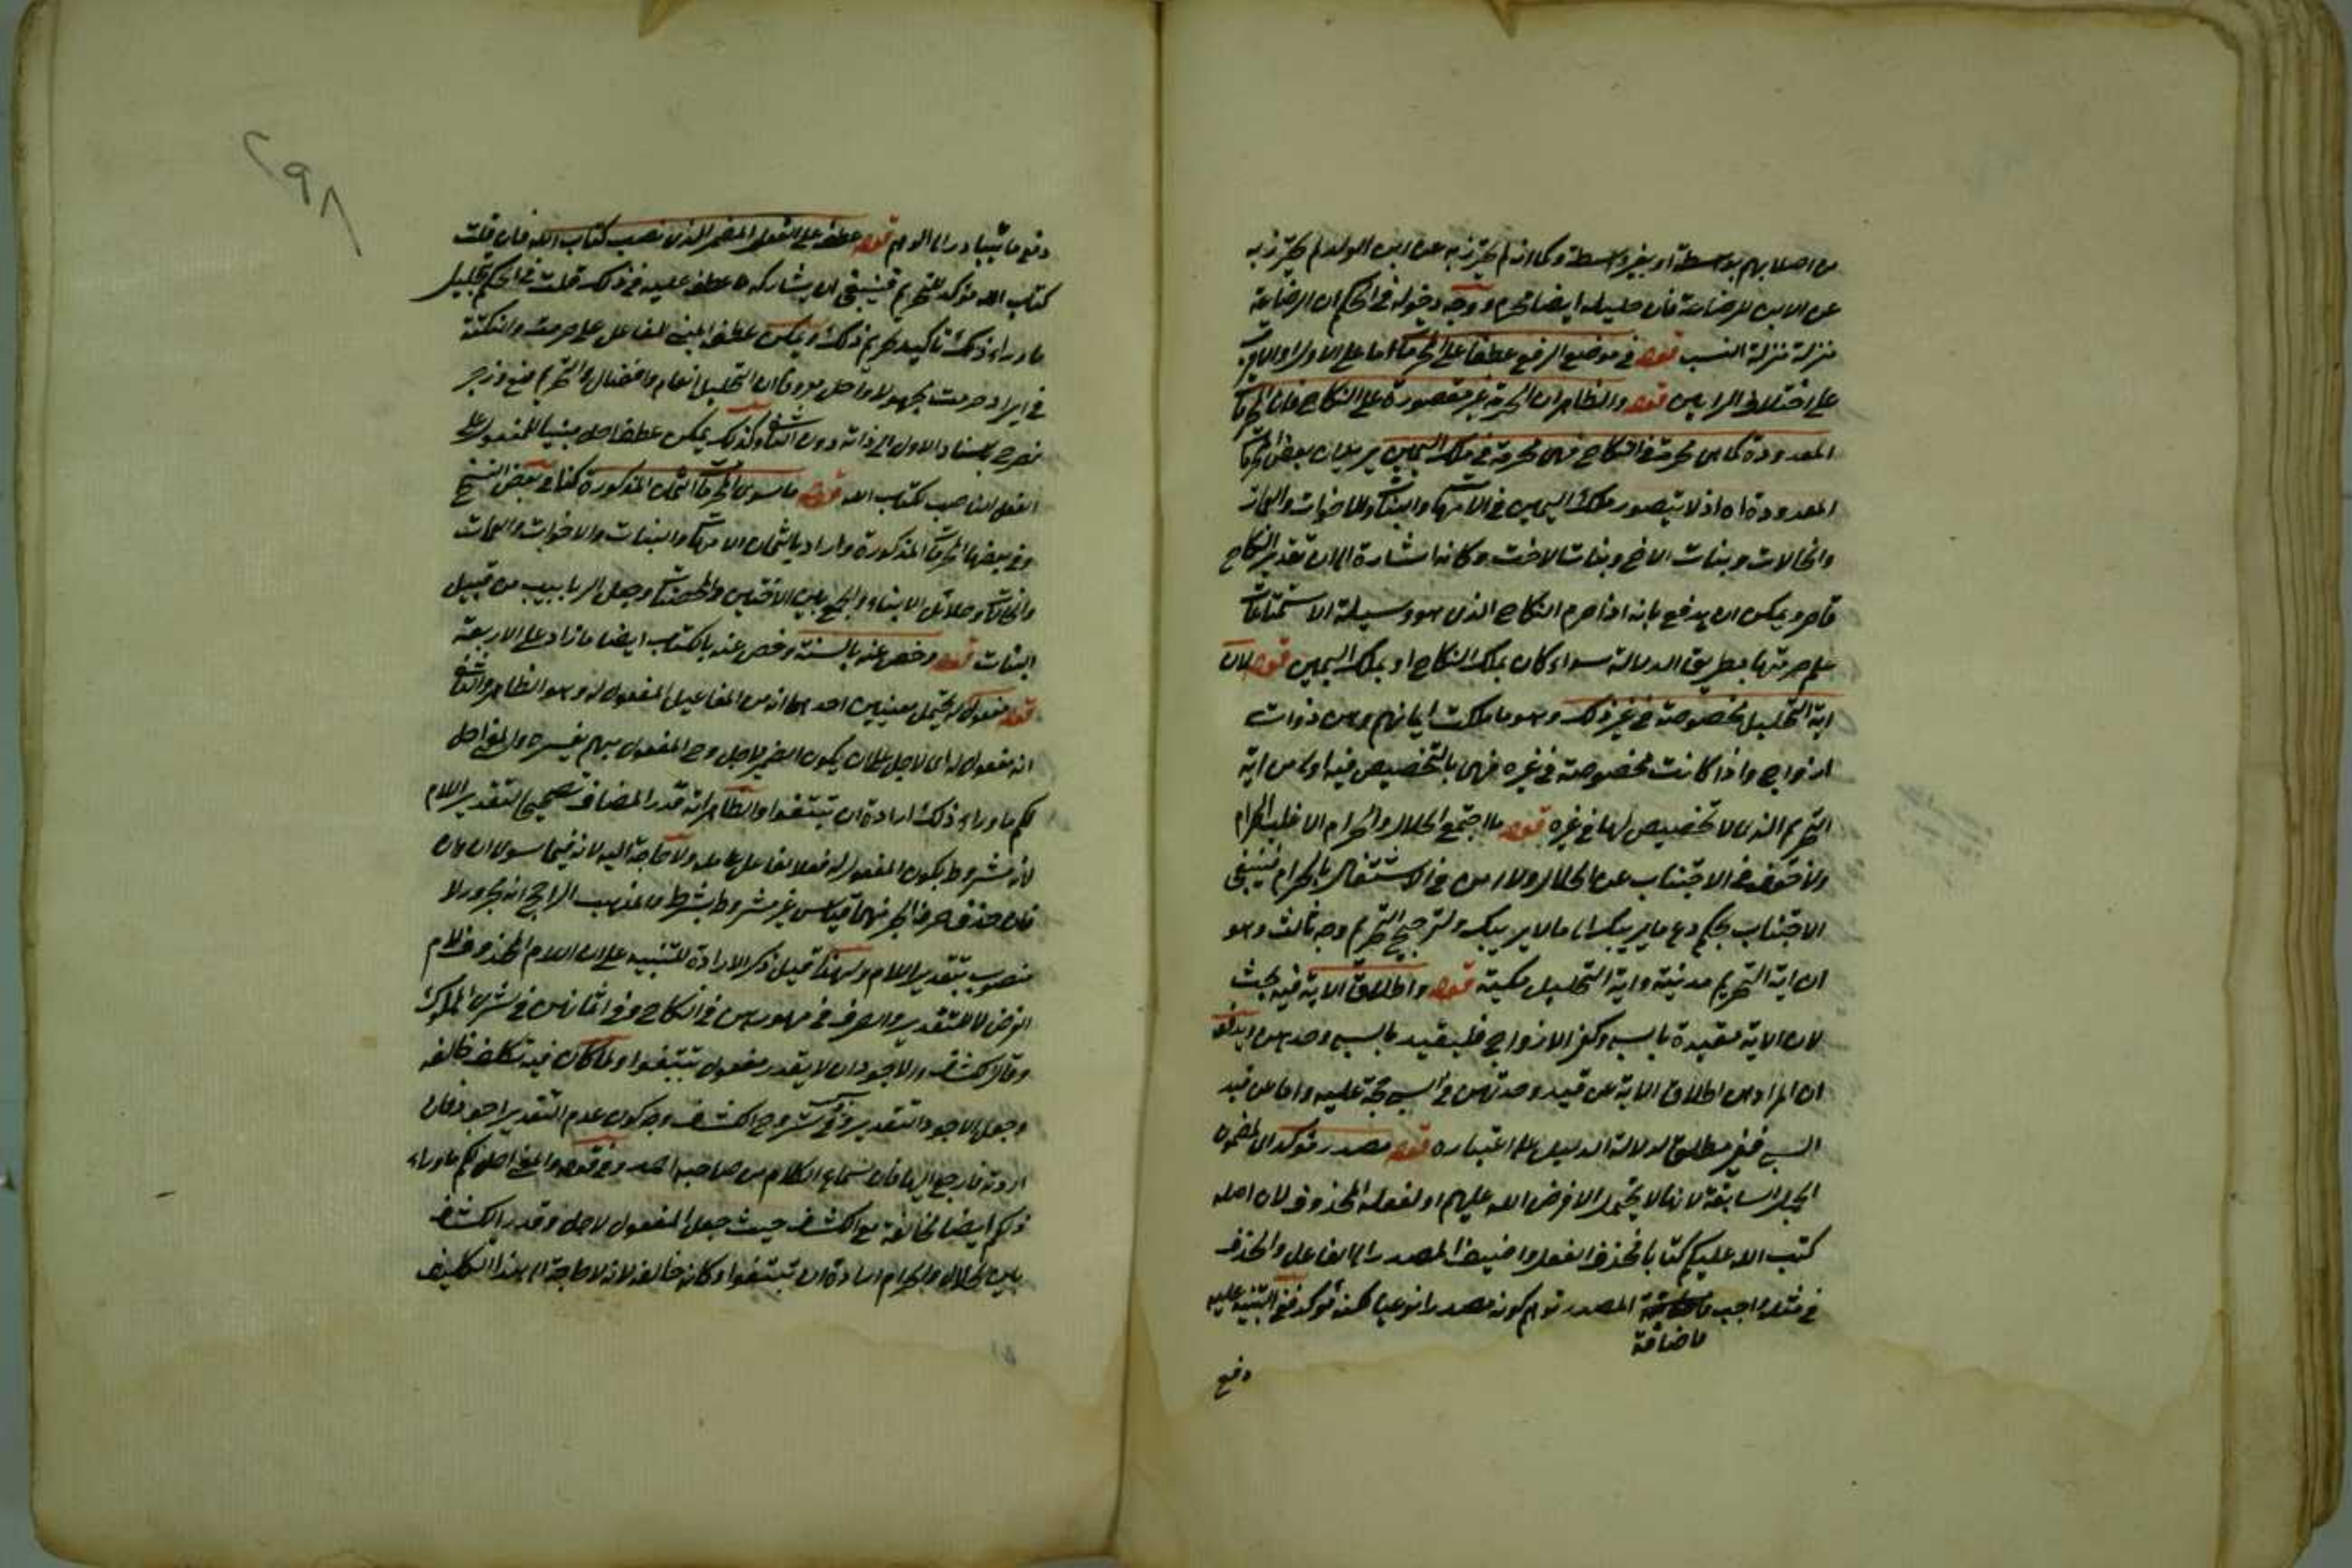 من اصلابهم بواسطة او بغير واسطة وكما انه لم يحترز به عن ابن الولد لم يحترز به
عن الابن للرضاعة فان حليلته ايضا محرم ووجه دخوله في الحكم ان الرضاعة
منزلة منزلة النسب قوله في موضع الرفع عطفا على المحرمات اما على الاولى او الاولى
على اختلاف الرايين قوله والظاهر ان الحرمة غير مقصورة على النكاح فان المحرمات
المعدودة كما هي محرمة في النكاح فهي محرمة في ملك اليمين يريد ان بعض المحرمات
المعدودة اه اذ لا يتصور ملك اليمين في الامهات والبنات والاخوات والعمات
والخالات وبنات الاخ وبنات الاخت وكانه اشارة الى ان تقدير النكاح
قاصر ويمكن ان يدفع بانه اذا حرم النكاح الذي هو وسيلة الاستمتاعات
علم حرمتها بطريق الدلالة سواء كان بملك النكاح او بملك اليمين قوله لان
اية التحليل مخصوصة في غير ذلك وهو ما ملكت ايمانهم وهن ذوات
ازواج واذا كانت مخصوصة في غيره فهي بالتخصيص فيه اولى من اية
التحريم الذي لا تخصيص لها في غيره قوله ما اجتمع الحلال والحرام الا غلب الحرام
ولا خوف في الاجتناب عن الحلال ولا امن في الاشتغال بالحرام فينبغي
الاجتناب بحكم دع ما يريبك الى ما لا يريبك ولترجيح التحريم وجه ثالث وهو
ان اية التحريم مدنية واية التحليل مكية قوله واطلاق الاية فيه بحث
لان الاية مقيدة بالسبي وكفر الازواج فليقيد بالسبي وحدهن
ان المراد من اطلاق الاية عن قيد وحدتهن في السبي حجة عليه واما من قيد
السبي فغير مطلق لدلالة الدليل على اعتباره قوله مصدر مؤكد اى لمضمون
الجملة السابقة لانها لا يحتمل الا فرض الله عليهم او لفعله المحذوف لان اصله
كتب الله عليكم كتابا فحذف الفعل واضيف المصدر الى الفاعل والحذف
في مثله واجب المصدر توهم كونه مصدرا نوعيا لكنه مؤكد ففي التنبيه عليه
فاضافة
دفع
٢٩٨
دفع ما يتبادر الى الوهم قوله عطف على الفعل المضمر الذي نصب كتاب الله فان قلت
كتاب الله مؤكد للتحريم فينبغي ان يشاركه ما عطف عليه في ذلك قلت في الحكم بتحليل
ما وراء ذلك تاكيد تحريم ذلك ويمكن عطف المبني للفاعل على حرمت والنكتة
في ايراد حرمت مجهولا واحل معروفا ان التحليل انعام وافضال والتحريم منع وزجر
فصرح باسناد الاول الى ذاته دون الثاني وكذلك يمكن عطف احل مبنيا للمفعول على
الفعل الناصب لكتاب الله قوله ما سوى المحرمات الثمان المذكورة كذا في بعض النسخ
وفي بعضها المحرمات المذكورة واراد بالثمان الامهات والبنات والاخوات والعمات
والخالات وحلائل الابناء والجمع بين الاختين والمحصنات وجعل الربايب من قبيل
البنات قوله وخص عنه بالسنة وخص عنه بالكتاب ايضا ما زاد على الاربعة
قوله مفعول له يحتمل معنيين احدهما انه من المفاعيل المفعول له وهو الظاهر والثاني
انه مفعول له اى لاجل بان يكون الضمير لاحل وح المفعول مبهم يفسره والمعنى احل
لكم ما وراء ذلك ارادة ان تبتغوا والظاهر انه قدر المضاف تصحيحا لتقدير اللام
لانه مشروط بكون المفعول له فعلا لفاعل عامله ولا حاجة اليه لانه فيما سوى ان وان
فان حذف حرف الجر فيهما قياس غير مشروط بشرط والمذهب الراجح انه مجرور لا
منصوب بتقدير اللام ولهذا قيل ذكر الارادة للتنبيه على ان اللام المحذوف لام
الغرض لا للتقدير والصرف في مهورهن في النكاح وفي اثمانهن في شراء المملوك
وقال الكشاف والاجود ان لا يقدر مفعول تبتغوا ولما كان فيه تكلف خالفه
وجعل الاجود التقدير وفي شروح الكشاف وجه كون عدم التقدير اجود فان
اردته فارجع اليها فان سماع الكلام من صاحبه الصدر وفي قوله والمعنى احل لكم ما وراء
ذلكم ايضا مخالفة مع الكشاف حيث جعل المفعول لاجله وقدر الكشاف
بين الحلال والحرام ارادة ان تبتغوا وكانه خالفه لانه لا حاجة الى هذا التكليف